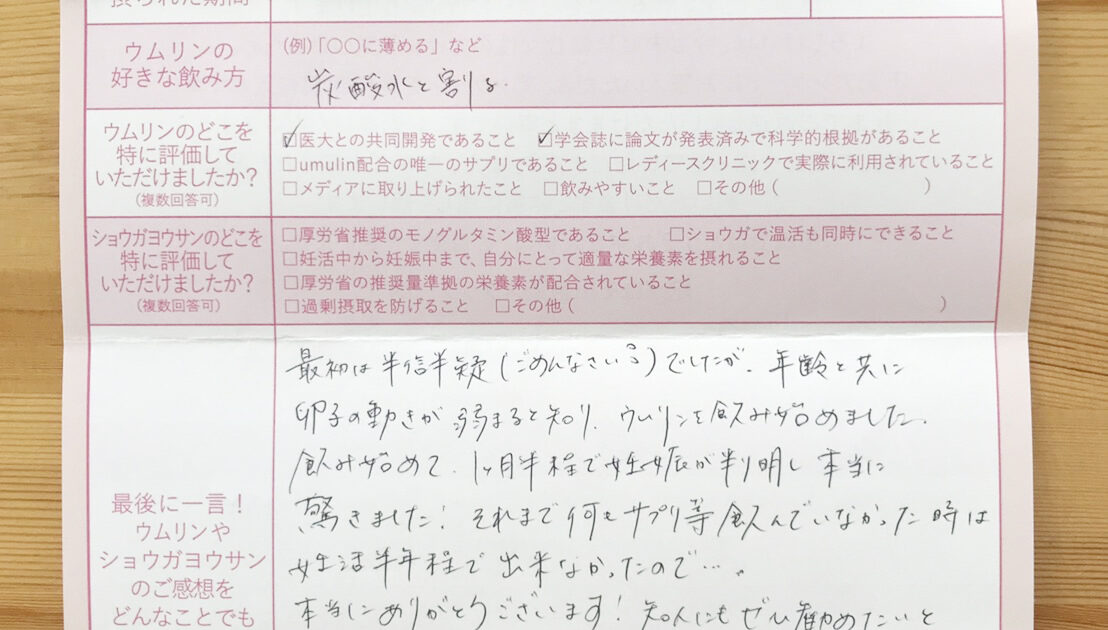 摂られた期間
ウムリンの
好きな飲み方
(例)「〇〇に薄める」など
炭酸水と割る.
ウムリンのどこを
特に評価して
いただけましたか?
(複数回答可)
☑医大との共同開発であること ☑学会誌に論文が発表済みで科学的根拠があること
□umulin配合の唯一のサプリであること □レディースクリニックで実際に利用されていること
□メディアに取り上げられたこと □飲みやすいこと □その他( )
ショウガヨウサンのどこを
特に評価して
いただけましたか?
(複数回答可)
□厚労省推奨のモノグルタミン酸型であること □ショウガで温活も同時にできること
□妊活中から妊娠中まで、自分にとって適量な栄養素を摂れること
□厚労省の推奨量準拠の栄養素が配合されていること
□過剰摂取を防げること □その他( )
最後に一言!
ウムリンや
ショウガヨウサン
のご感想を
どんなことでも
最初は半信半疑(ごめんなさい)でしたが、年齢と共に
卵子の動きが弱まると知り、ウムリンを飲み始めました。
飲み始めて、1ヶ月半程で妊娠が判明し本当に
驚きました!それまで何もサプリ等飲んでいなかった時は
妊活半年程で出来なかったので…。
本当にありがとうございます!知人にもぜひ勧めたいと